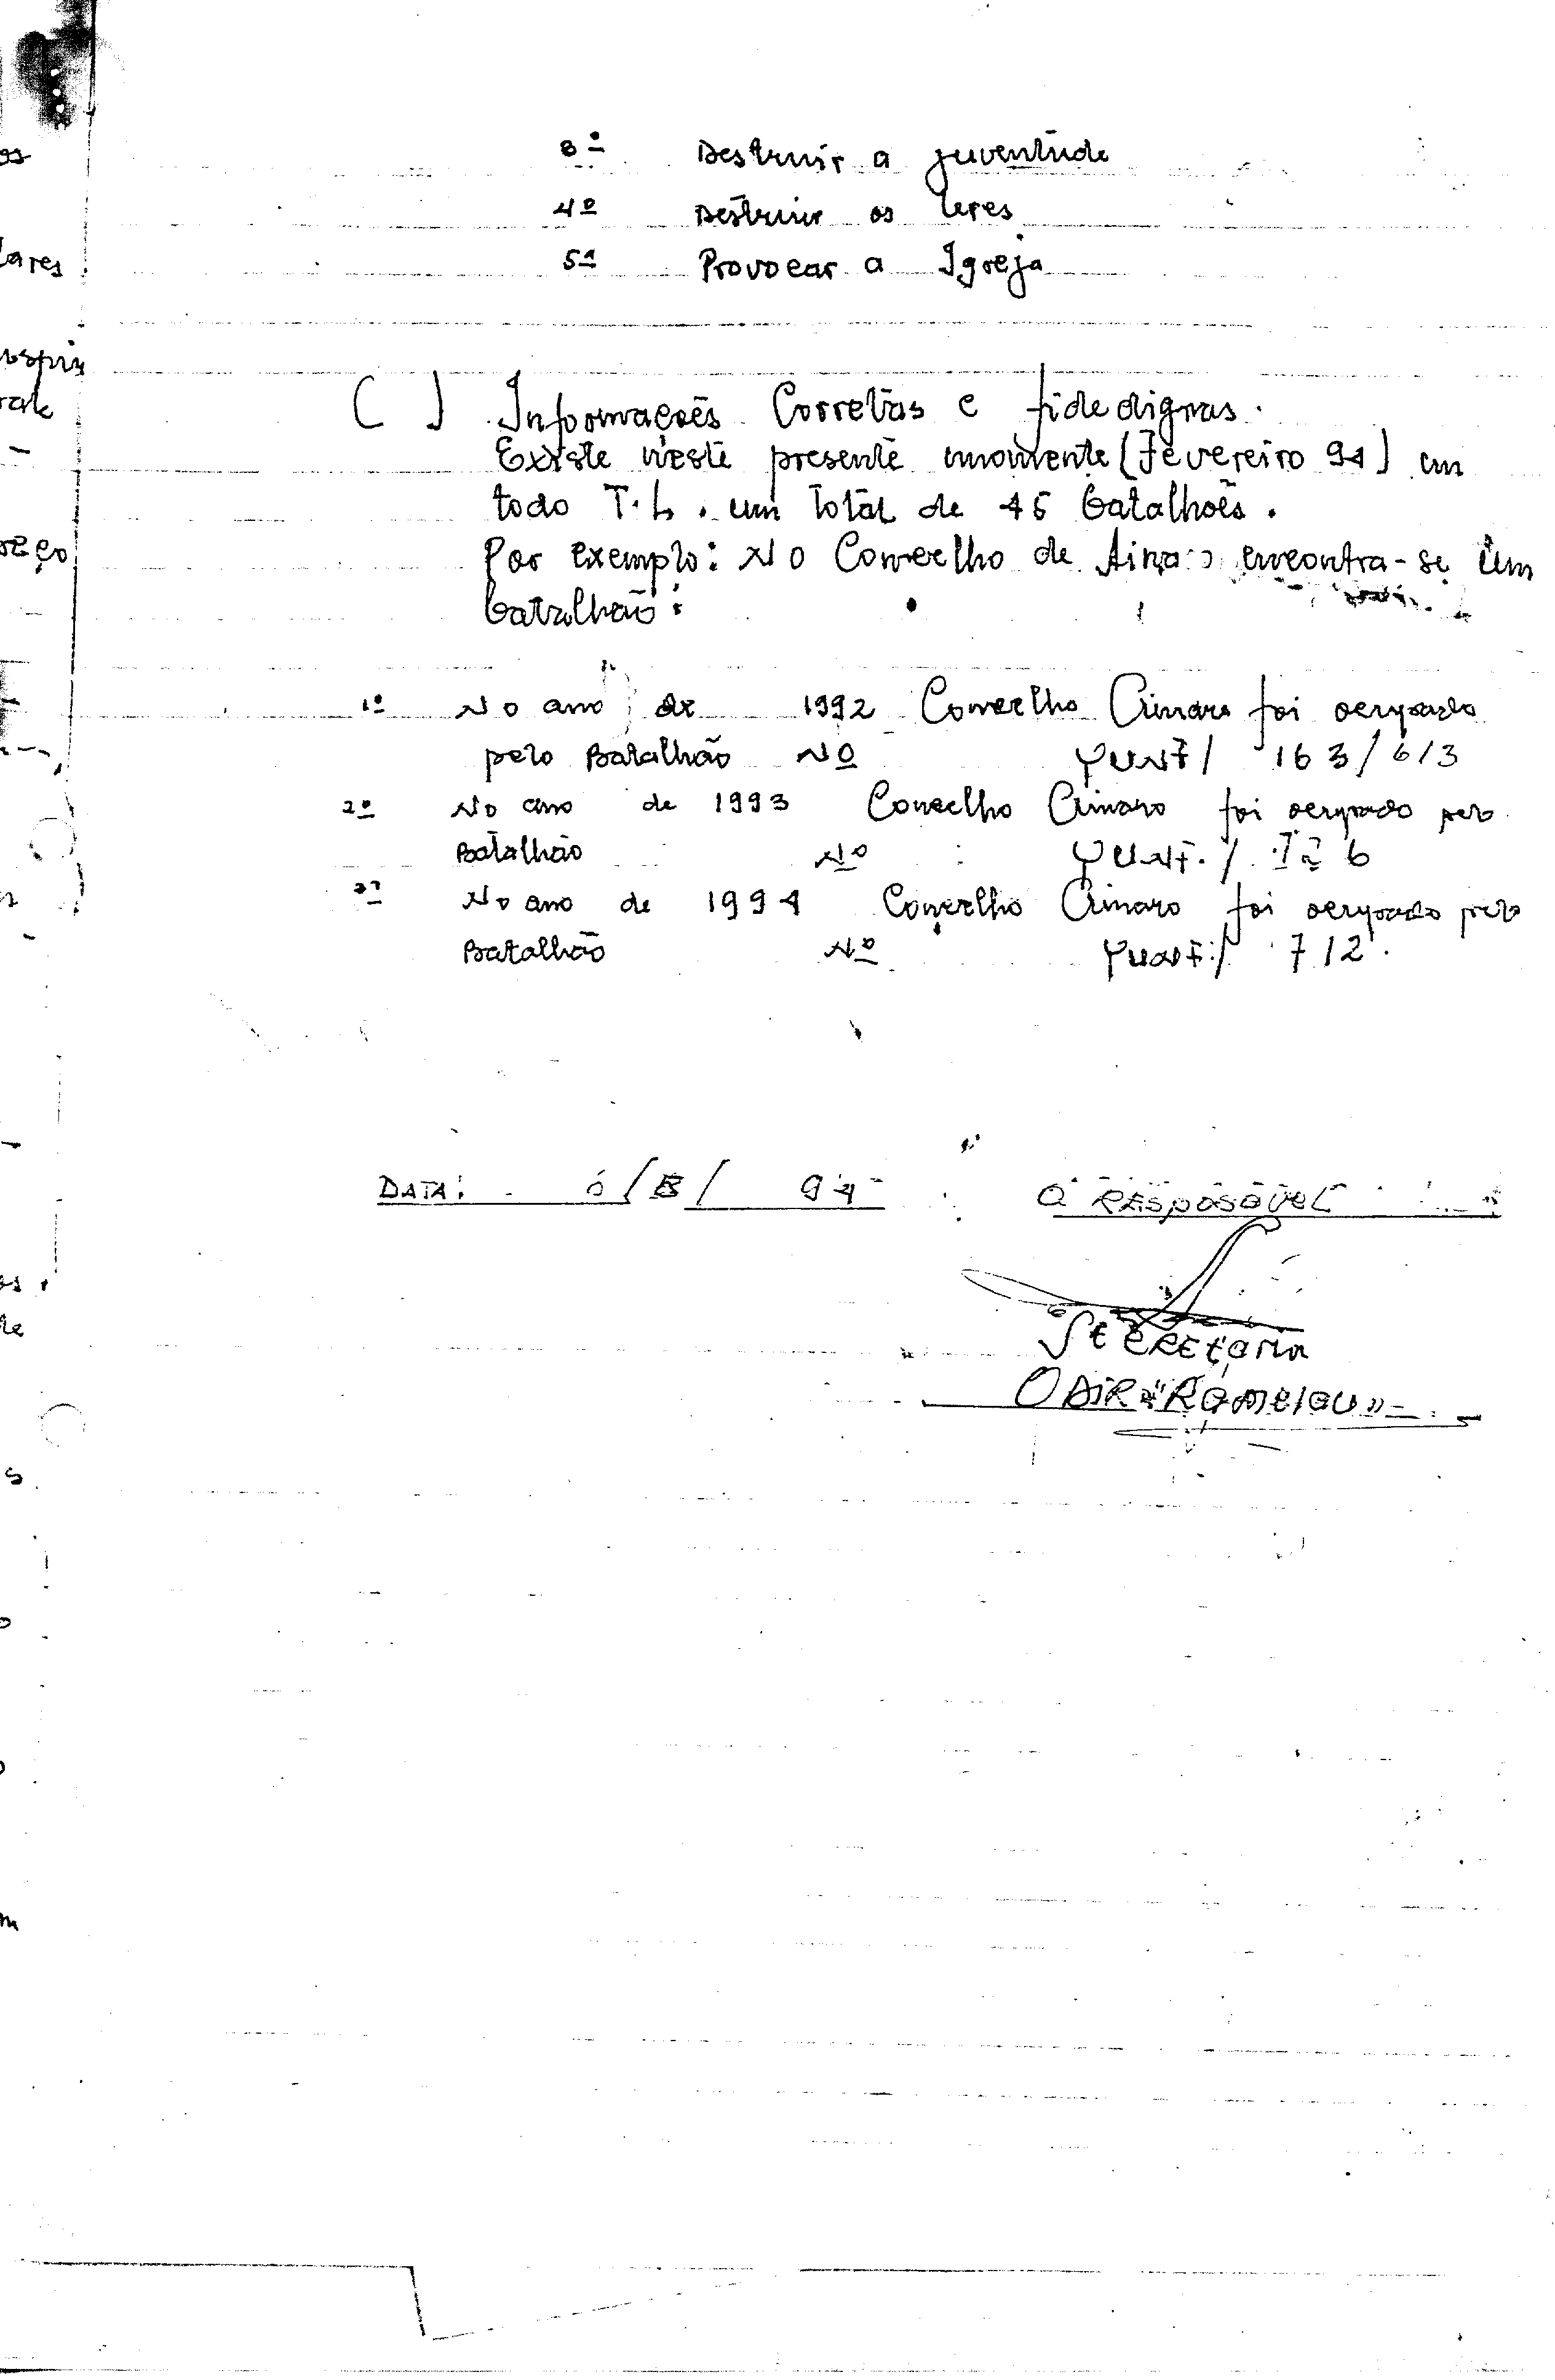 3º Destruir a juventude
4º Destruir os leres
5º Provocar a Igreja
( ) Informações Corretas e fidedignas.
Existe neste presente momente (Fevereiro 94) em
todo T.L. um total de 45 batalhões.
Por exemplo: No Concelho de encontra-se um
batalhão:
1º No ano de 1992 Concelho Ainaro foi ocupado
pelo Batalhão Nº YUNF/ 163/613
2º No ano de 1993 Concelho Ainaro foi ocupado pelo
Batalhão Nº YUNF./
3º No ano de 1994 Concelho Ainaro foi ocupado pelo
Batalhão Nº YUNF:/ 712.
DATA: 94 O RESPOSÁVEL
SECRETARIA
ODIR
lares